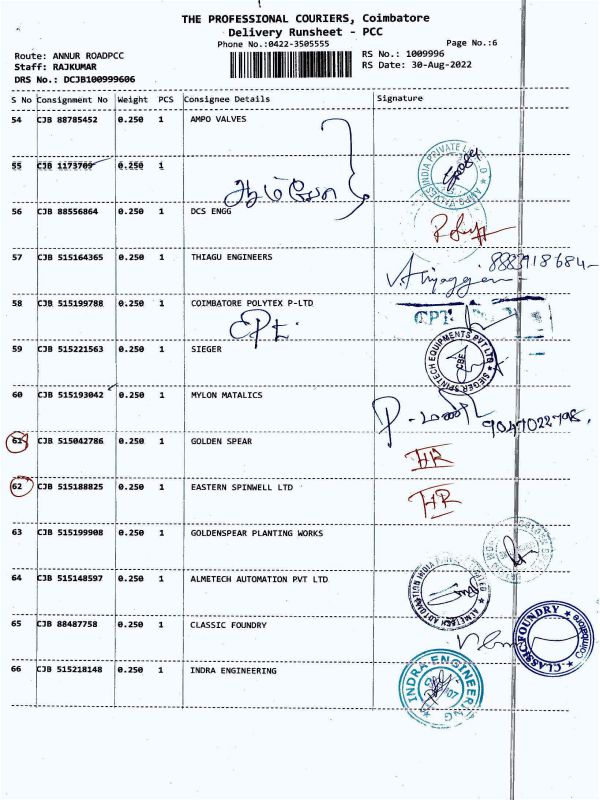 THE PROFESSIONAL COURIERS, Coimbatore
Delivery Runsheet - PCC
Phone No.:0422-3505555
Page No.:6
Route: ANNUR ROADPCC
RS No.: 1009996
Staff: RAJKUMAR
RS Date: 30-Aug-2022
DRS No.: DCJB100999606
S No Consignment No Weight PCS Consignee Details Signature
54 CJB 88785452 0.250 1 AMPO VALVES
55 CJB 1173709 0.250 1
56 CJB 88556864 0.250 1 DCS ENGG
57 CJB 515164365 0.250 1 THIAGU ENGINEERS
8883918684
58 CJB 515199788 0.250 1 COIMBATORE POLYTEX P-LTD
CPT
59 CJB 515221563 0.250 1 SIEGER
SIEGER SPINTECH EQUIPMENTS PVT LTD
CBE
60 CJB 515193042 0.250 1 MYLON MATALICS
9047022798
61 CJB 515042786 0.250 1 GOLDEN SPEAR
HR
62 CJB 515188825 0.250 1 EASTERN SPINWELL LTD
HR
63 CJB 515199908 0.250 1 GOLDENSPEAR PLANTING WORKS
64 CJB 515148597 0.250 1 ALMETECH AUTOMATION PVT LTD
65 CJB 88487758 0.250 1 CLASSIC FOUNDRY
CLASSIC FOUNDRY
Coimbatore
66 CJB 515218148 0.250 1 INDRA ENGINEERING
INDRA ENGINEERING